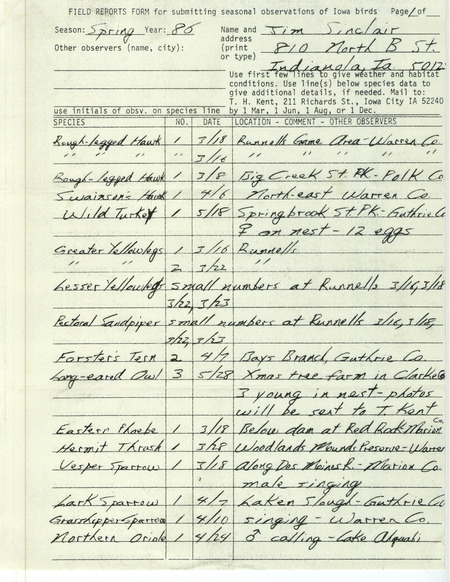 FIELD REPORTS FORM for submitting seasonal observations of Iowa birds Page 1 of
Season: Spring Year: 86 Name and Jim Sinclair
Other observers (name, city): address 810 North B St.
(print
or type) Indianola, Ia 5012
Use first few lines to give weather and habitat
conditions. Use line(s) below species data to
give additional details, if needed. Mail to:
T. H. Kent, 211 Richards St., Iowa City IA 52240
use initials of obsv. on species line by 1 Mar, 1 Jun, 1 Aug, or 1 Dec.
SPECIES NO. DATE LOCATION - COMMENT - OTHER OBSERVERS
Rough-legged Hawk 1 3/18 Runnells Game Area - Warren Co
" " " 3/16 " " " "
Rough-legged Hawk 1 3/8 Big Creek St. PK - Polk Co
Swainson's Hawk 1 4/6 North-east Warren Co.
Wild Turkey 1 5/18 Springbrook St PK - Guthrie Co
♀ on nest - 12 eggs
Greater Yellowlegs 1 3/16 Runnells
" 2 3/22 "
Lesser Yellowlegs small numbers at Runnells 3/16, 3/18
3/22, 3/23
Pectoral Sandpiper small numbers at Runnells 3/16, 3/18,
3/22, 3/23
Forster's Tern 2 4/7 Bays Branch, Guthrie Co.
Long-eared Owl 3 5/28 Xmas tree farm in Clarke Co
3 young in nest - photos
will be sent to T. Kent
Eastern Phoebe 1 3/18 Below dam at Red Rock Marion Co.
Hermit Thrush 1 3/28 Woodlands Mounds Preserve - Warren
Vesper Sparrow 1 3/18 Along Des Moines R. - Marion Co.
male singing
Lark Sparrow 1 4/7 Laken Slough - Guthrie Co
Grasshopper Sparrow 1 4/10 singing - Warren Co.
Northern Oriole 1 4/24 ♂ calling - Lake Ahquabi